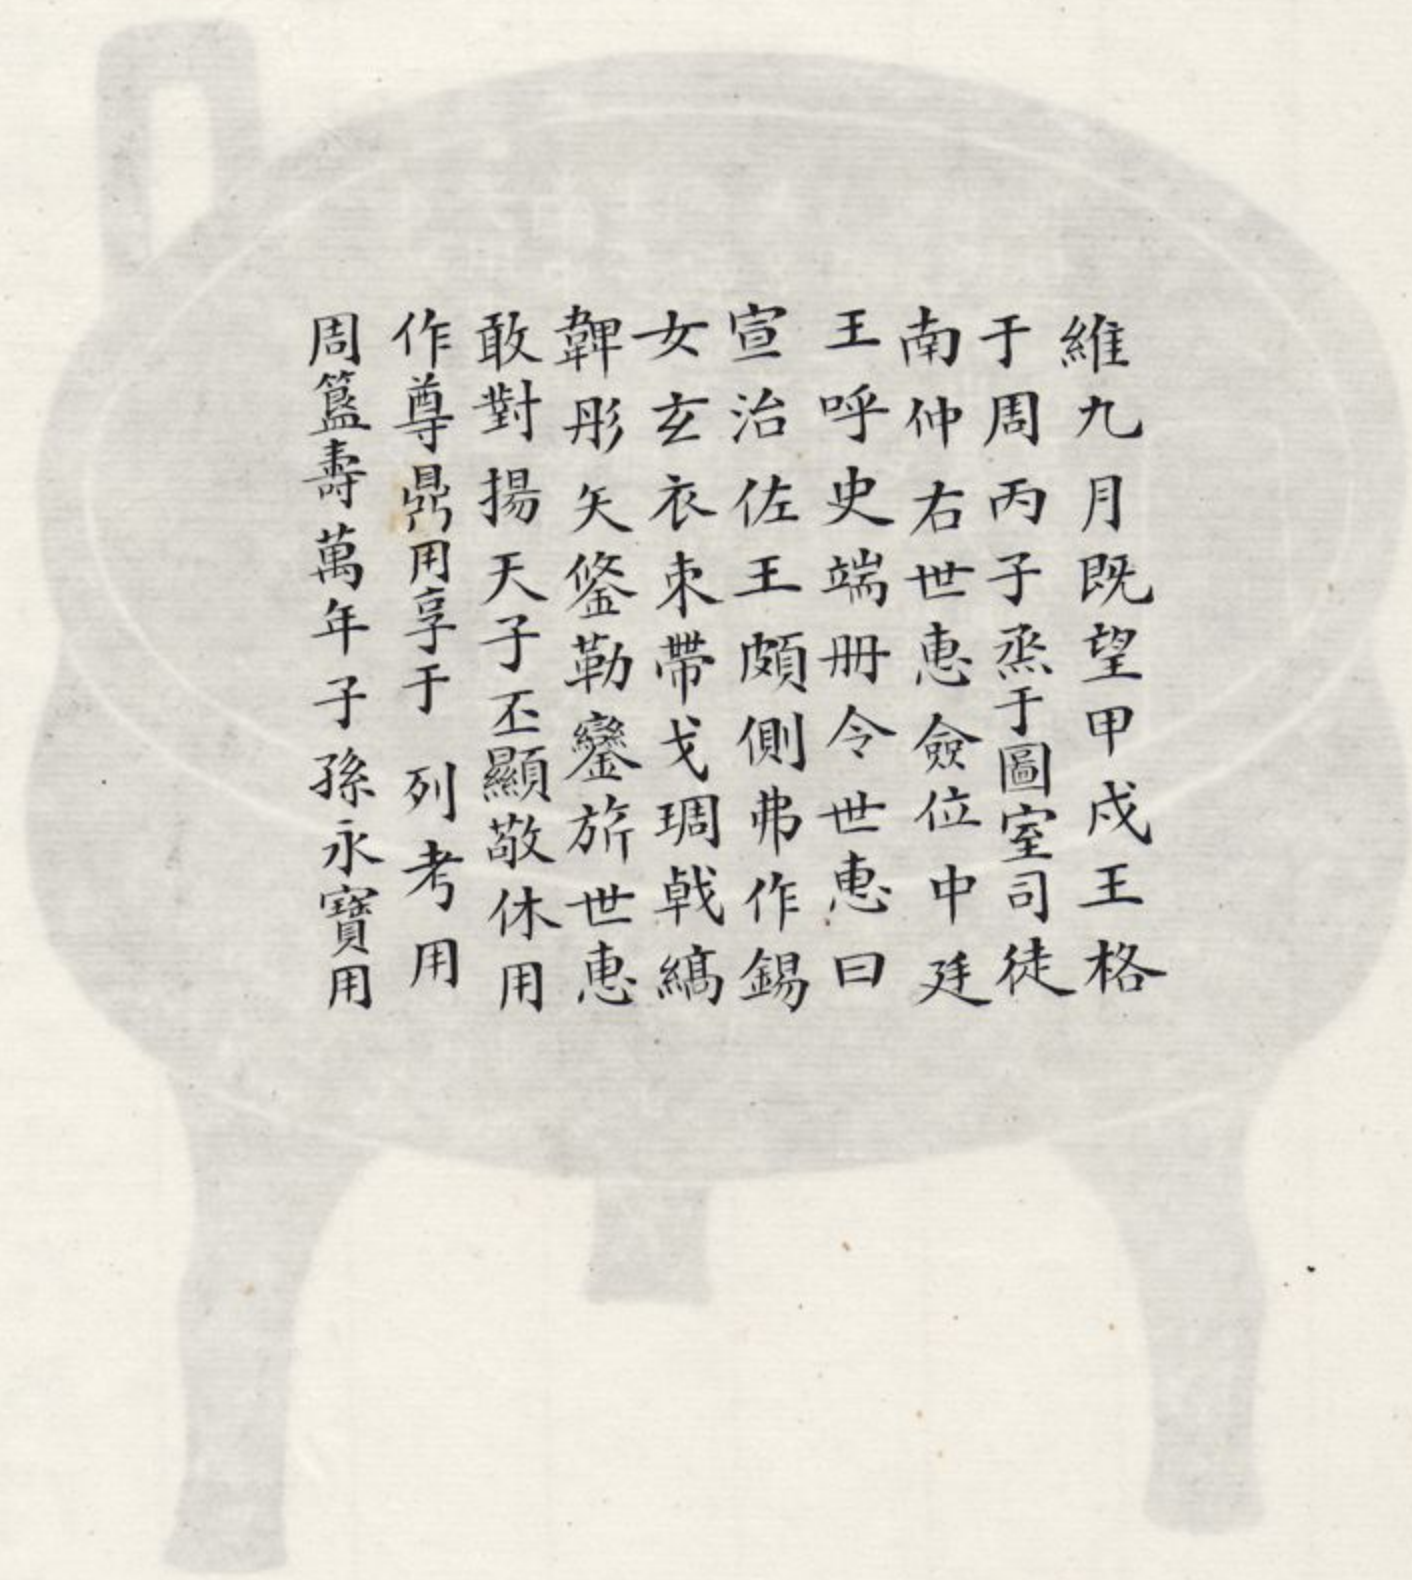 維九月既望甲戌王格
于周丙子烝于圖室司徒
南仲右世惠僉位中廷
王呼史端冊令世惠曰
宣治佐王頗側弗作錫
女玄衣朿帶戈琱戟縞
韠彤矢鋚勒鑾旂世惠
敢對揚天子丕顯敬休用
作尊鼎用享于 列考用
周簋壽萬年子孫永寶用